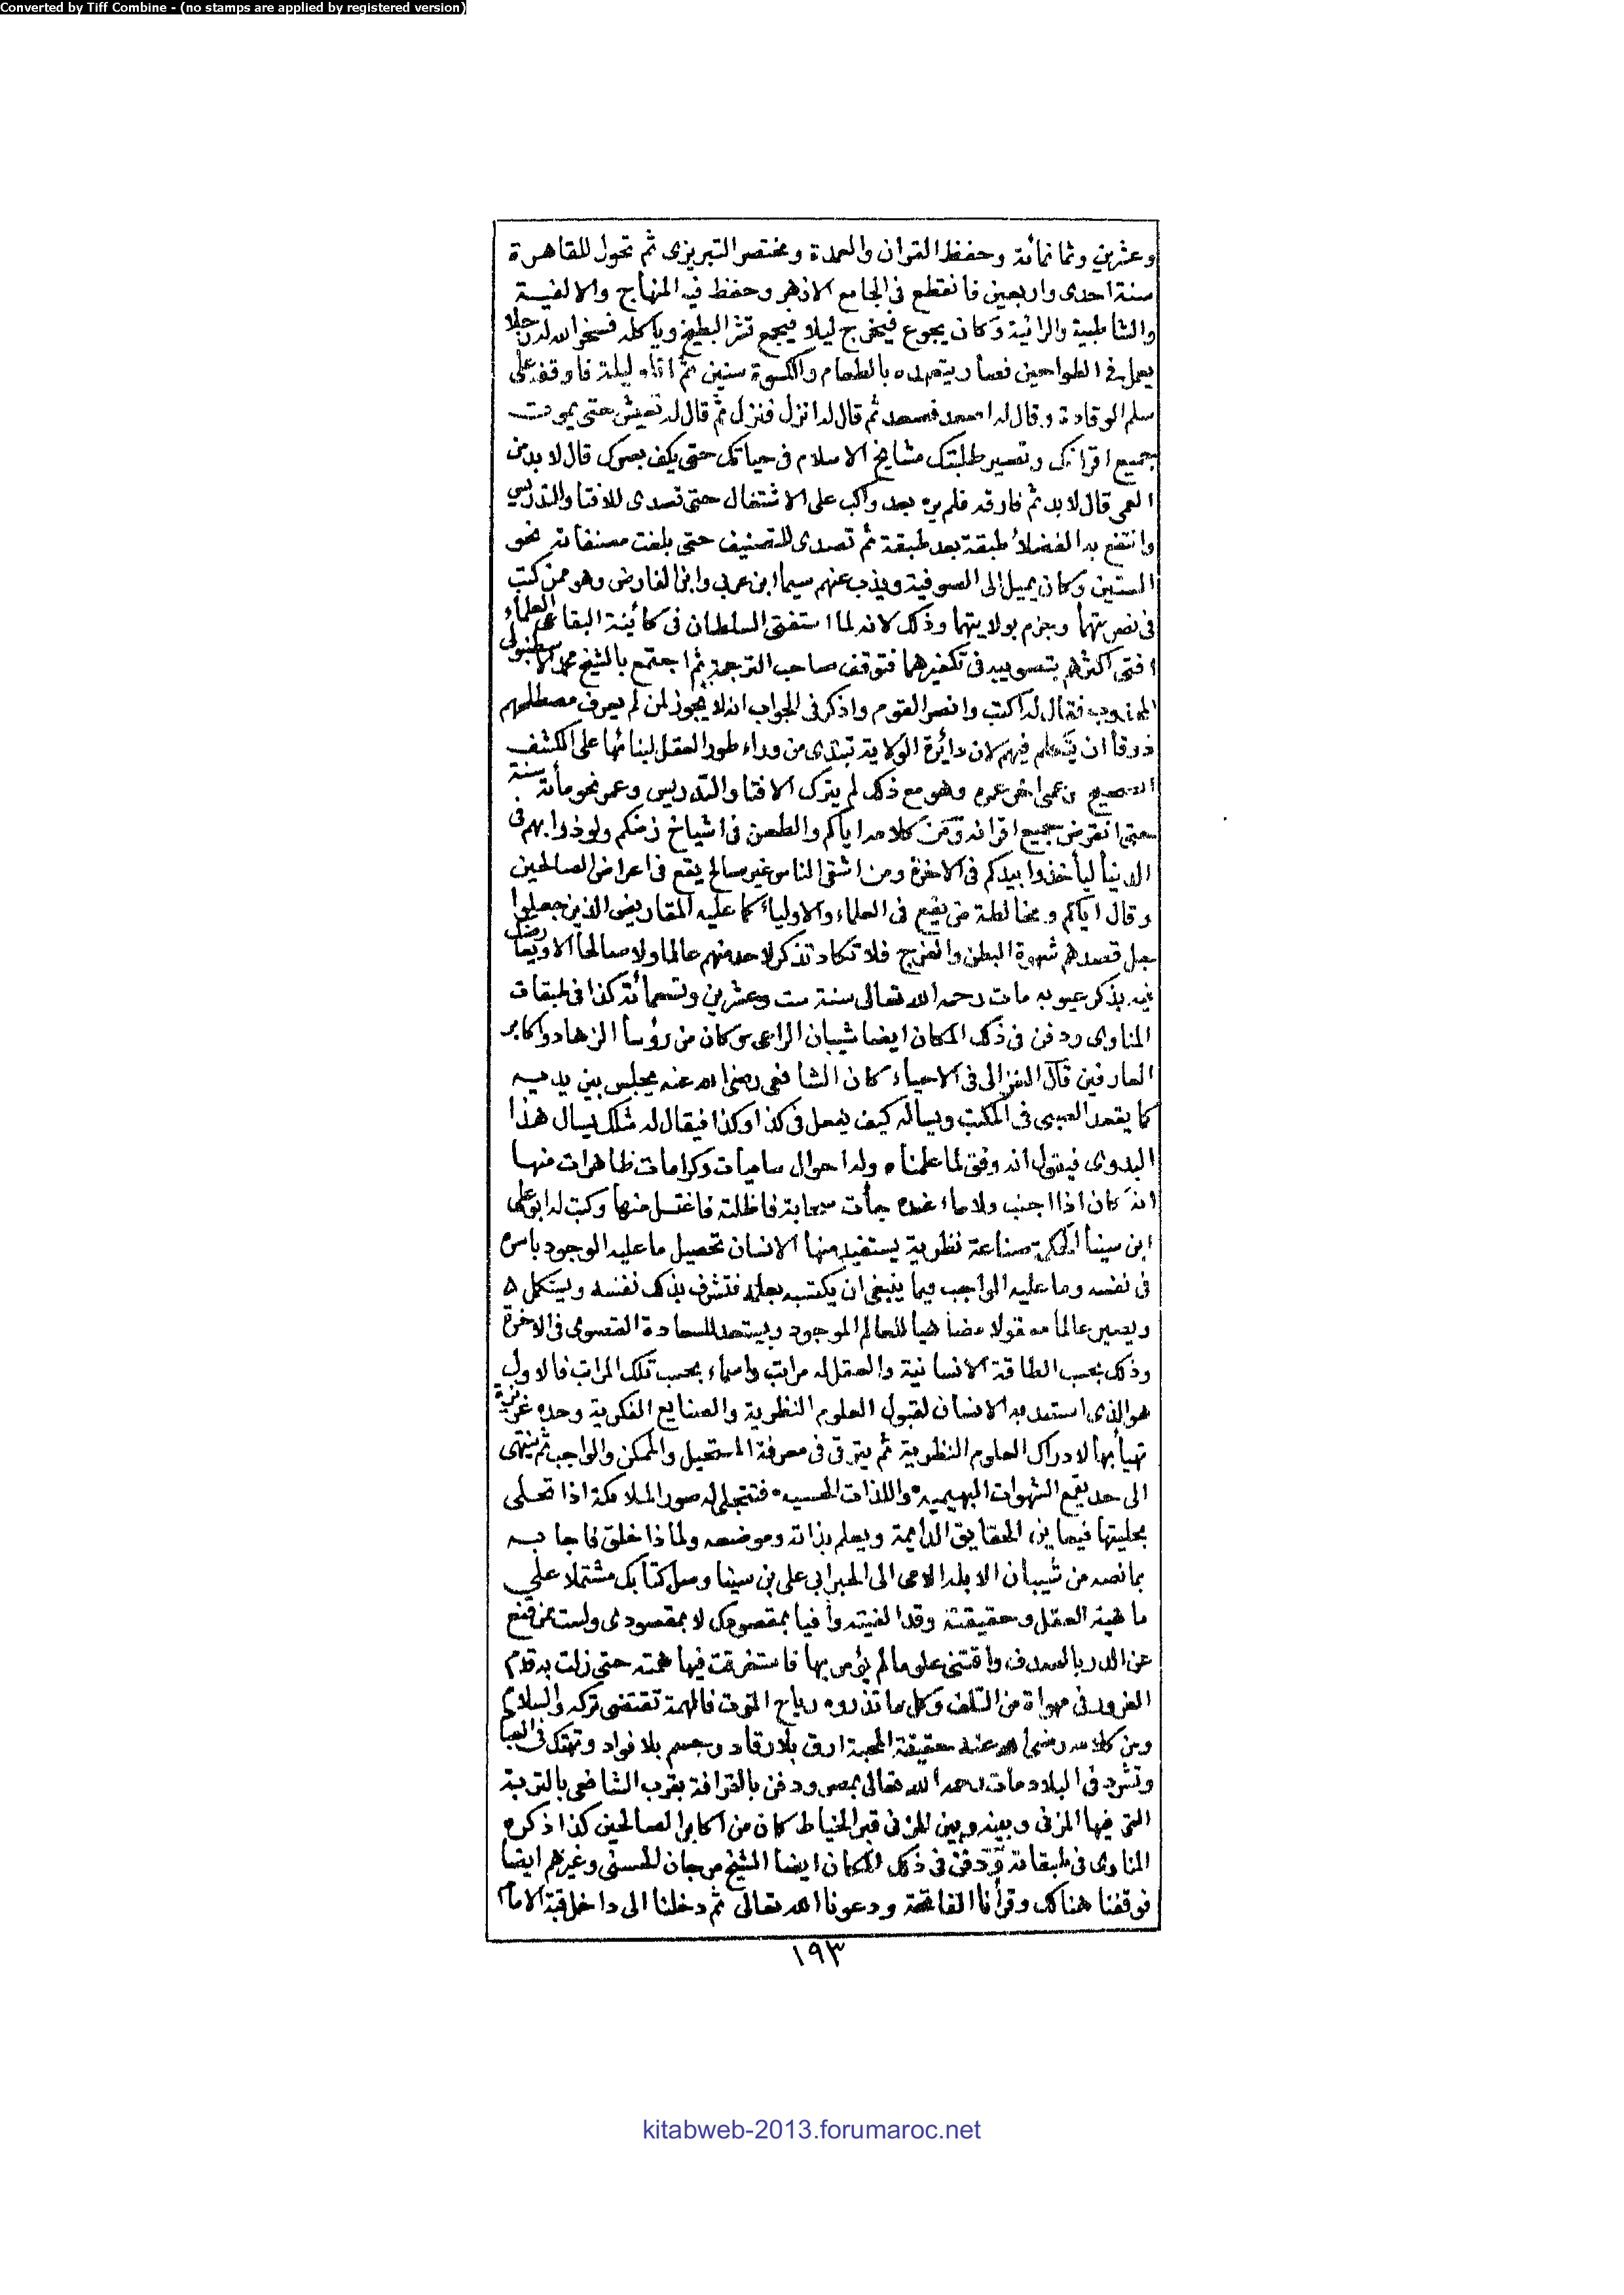 Converted by Tiff Combine - (no stamps are applied by registered version)
وعشرين وثمانمائة وحفظ القران والعمدة ومختصر التبريزى ثم تحول للقاهرة
سنة احدى واربعين فانقطع فى الجامع الازهر وحفظ فيه المنهاج والالفية
والشاطبية والرائية وكان يجوع فيخرج ليلا فيجمع قشر البطيخ وياكله فسخر الله له رجلا
يعمل فى الطواحين فصار يتعهده بالطعام والكسوة سنين ثم اتاه ليلة فاوقفه على
سلم الوقادة وقال له اصعد فصعد ثم قال له انزل فنزل ثم قال له تعيش حتى يموت
جميع اقرانك وتصير طلبتك مشايخ الاسلام فى حياتك حتى يكف بصرك قال لا بد من
العمى قال لا بد ثم فارقه فلم يره بعد واكب على الاشتغال حتى تصدى للافتا والتدريس
وانتفع به الفضلاء طبقة بعد طبقة ثم تصدى للتصنيف حتى بلغت مصنفاته نحو
الستين وكان يميل الى الصوفية ويذب عنهم سيما ابن عربى وابن الفارض وهو ممن كتب
فى نصرتهما وجزم بولايتهما وذلك لانه لما استفتى السلطان فى كائينة البقاعى العلماء
افتى اكثرهم بتصويبه فى تكفيرهما فتوقف صاحب الترجمة ثم اجتمع بالشيخ محمد الاسطنبولى
المجذوب فقال له اكتب وانصر القوم واذكر فى الجواب انه لا يجوز لمن لم يعرف مصطلحهم
ذوقا ان يتكلم فيهم لان دائرة الولاية تبتدى من وراء طور العقل لبنائها على الكشف
الصحيح وعمى اخر عمره وهو مع ذلك لم يترك الافتا والتدريس وعمر نحو مأئة سنة
حتى انقرض جميع اقرانه ومن كلامه اياكم والطعن فى اشياخ زمنكم ولوذوا بهم فى
الدنيا ليأخذوا بيدكم فى الاخرة ومن اشقى الناس غير صالح يقع فى اعراض الصالحين
وقال اياكم ومخالطة من يقع فى العلماء والاولياء كما عليه المقاريض الذين جعلوا
جل قصدهم شهوة البطن والفرج فلا تكاد تذكر لاحد منهم عالما ولا صالحا الا ويعارضك
فيه بذكر عيوبه مات رحمه الله تعالى سنة ست وعشرين وتسعمائة كذا فى طبقات
المناوى ودفن فى ذلك المكان ايضا شيبان الراعى كان من رؤسا الزهاد واكابر
العارفين قال الغزالى فى الاحياء كان الشافعى رضى الله عنه يجلس بين يديه
كما يقعد الصبى فى المكتب ويساله كيف يفعل فى كذا وكذا فيقال له مثلك يسال هذا
البدوى فيقول انه وفق لما علمناه وله احوال ساميات وكرامات ظاهرات منها
انه كان اذا اجنب ولا ماء عنده جأت سحابة فاظلته فاغتسل منها وكتب له ابو على
ابن سينا الحكمة صناعة نظرية يستفيد منها الانسان تحصيل ما عليه الوجود باسره
فى نفسه وما عليه الواجب فيما ينبغى ان يكتسبه بعلمه فتشرف بذلك نفسه ويستكمل
ويصير عالما معقولا مضاهيا للعالم الموجود ويستعد للسعادة القصوى فى الاخرة
وذلك بحسب الطاقة الانسانية والعقل له مراتب واسماء بحسب تلك المراتب فالاول
هو الذى استعد به الانسان لقبول العلوم النظرية والصنايع الفكرية وحده غريزة
تهيأ بها لادراك العلوم النظرية ثم يترقى فى معرفة المستحيل والممكن والواجب ثم ينتهى
الى حد يقمع الشهوات البهيميه واللذات الحسيه فتتجلى له صور الملائكة اذا تحلى
بحليتها فيعاين الحقايق الدائمة ويعلم بذاته وموضعه ولماذا خلق فاجابه
بما نصه من شيبان الابله الامى الى الحبر ابى على بن سينا وصل كتابك مشتملا على
ماهية العقل وحقيقته وقد الفيته وافيا بمقصودك لا بمقصودى ولست ممن قنع
عن الدر بالصدف واقتنى علوما لم يؤمر بها فاستغرقت فيها همته حتى زلت به قدم
الغرور فى مهواة من التلف وكل ما تذروه رياح الموت فالهمة تقتضى تركه والسلام
ومن كلامه رضى الله عنه حقيقة المحبة ارق بلا رقاد وجسم بلا فواد وتهتك فى العبا
وتشرد فى البلاد مات رحمه الله تعالى بمصر ودفن بالقرافة بقرب الشافعى بالتربة
التى فيها المزنى وبينه وبين المزنى قبر الخياط كان من اكابر الصالحين كذا ذكره
المناوى فى طبقاته ودفن فى ذلك المكان ايضا الشيخ مرجان الحسنى وغيرهم ايضا
فوقفنا هناك وقرأنا الفاتحة ودعونا الله تعالى ثم دخلنا الى داخل قبة الامام
١٩٣
kitabweb-2013.forumaroc.net